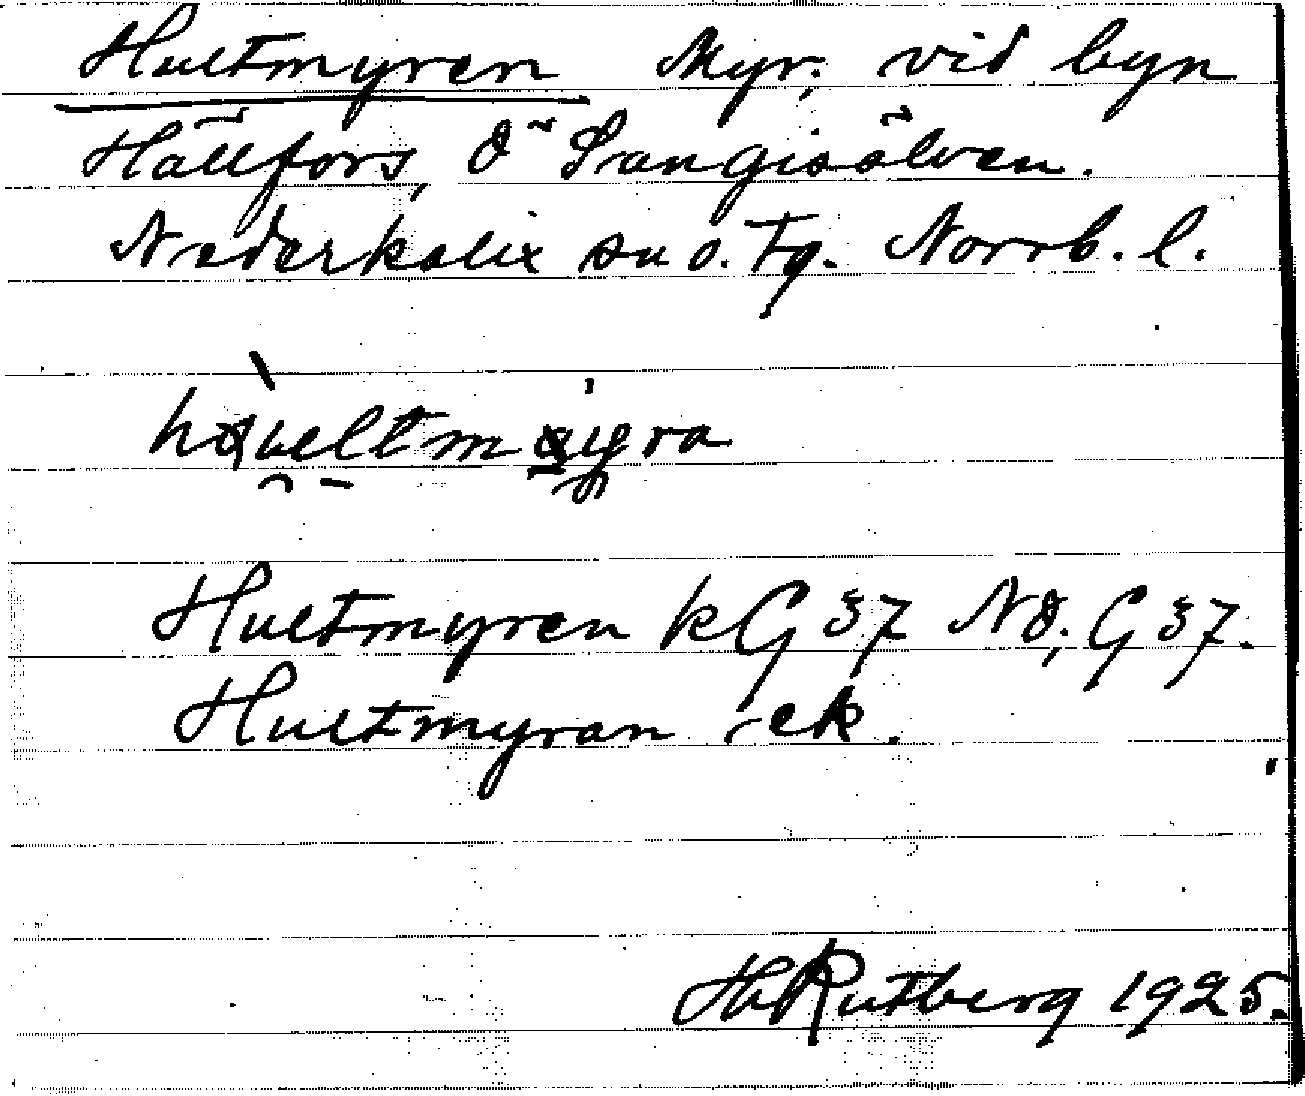 Hultmyren Myr; vid byn
Hällfors, Ö Sangisälven.
Nederkalix sn o. tg. Norrb. l.
Hultmyren kG 37 NÖ; G 37.
Hultmyran ek.
H Rutberg 1925.